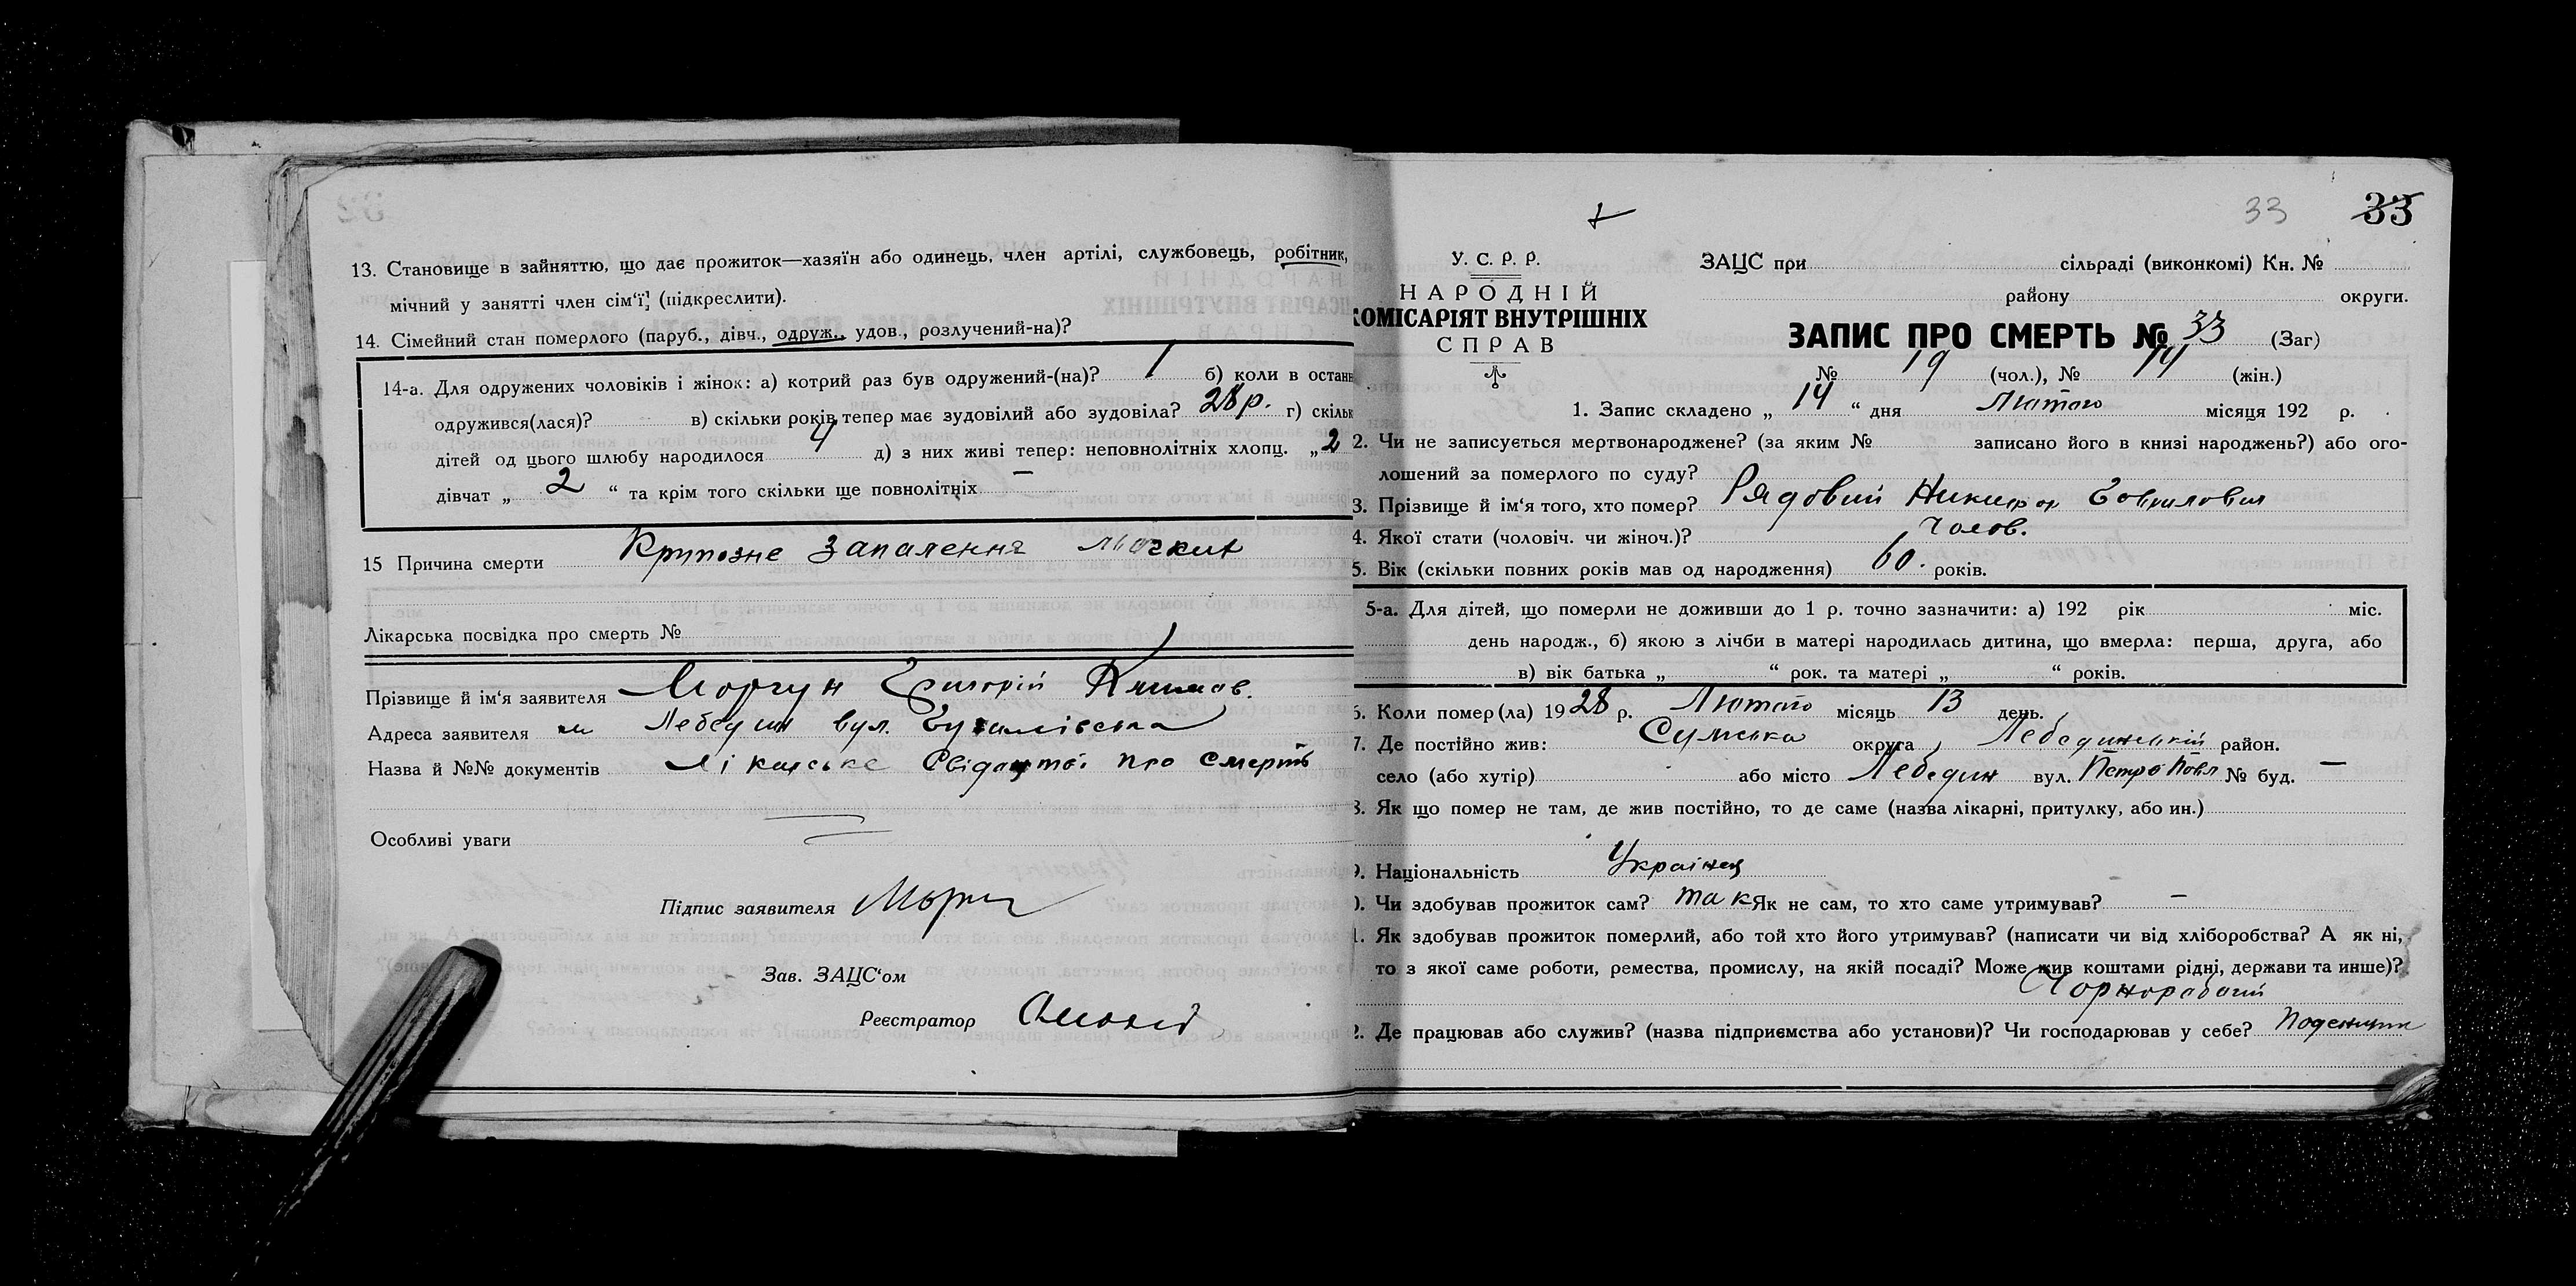 13. Становище в зайняттю, що дає прожиток—хазяїн або одинець, член артілі, службовець, робітник,
мічний у занятті член сім‘ї; (підкреслити).
14. Сімейний стан померлого (паруб., дівч., одруж., удов., розлучений-на)?
14-а. Для одружених чоловіків і жінок: а) котрий раз був одружений-(на)? 1 б) коли в останн
одружився(лася)? в) скільки років тепер має зудовілий або зудовіла? 28 р. г) скільк
дітей од цього шлюбу народилося 4 д) з них живі тепер: неповнолітніх хлопц. „ 2
дівчат „ 2 “ та крім того скільки ще повнолітніх —
15 Причина смерти Крупозне запалення
Лікарська посвідка про смерть №
Прізвище й ім‘я заявителя Моргун Григорій Климов.
Адреса заявителя м Лебедин вул.
Назва й №№ документів Лікарське про смерть
Особливі уваги
Підпис заявителя
Зав. ЗАЦС‘ом
Реєстратор
33 33
У. С. Р. Р.
НАРОДНІЙ
КОМІСАРІЯТ ВНУТРІШНІХ
СПРАВ
ЗАЦС при сільраді (виконкомі) Кн. №
району округи.
ЗАПИС ПРО СМЕРТЬ № 33 (Заг)
№ 19 (чол.), № 14 (жін.)
1. Запис складено „ 14 “ дня Лютого місяця 192 р.
2. Чи не записується мертвонароджене? (за яким № записано його в книзі народжень?) або ого-
лошений за померлого по суду?
3. Прізвище й ім‘я того, хто помер? Рядовий Никифор
4. Якої стати (чоловіч. чи жіноч.)? чолов.
5. Вік (скільки повних років мав од народження) 60. років.
5-а. Для дітей, що померли не доживши до 1 р. точно зазначити: а) 192 рік міс.
день народж., б) якою з лічби в матері народилась дитина, що вмерла: перша, друга, або
в) вік батька „ “ рок. та матері „ “ років.
6. Коли помер(ла) 19 28 р. Лютого місяць 13 день.
7. Де постійно жив: Сумська округа, Лебединській район.
село (або хутір) або місто Лебедин вул. Петро Павл № буд. —
8. Як що помер не там, де жив постійно, то де саме (назва лікарні, притулку, або ин.)
9. Національність Українец
). Чи здобував прожиток сам? так Як не сам, то хто саме утримував? —
1. Як здобував прожиток померлий, або той хто його утримував? (написати чи від хліборобства? А як ні,
то з якої саме роботи, ремества, промислу, на якій посаді? Може жив коштами рідні, держави та инше)?
Чорнорабочий
2. Де працював або служив? (назва підприємства або установи)? Чи господарював у себе? Поденщик